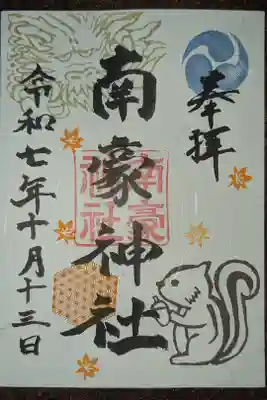 奉拝
南豪神社
令和七年十月十三日
南豪
神社